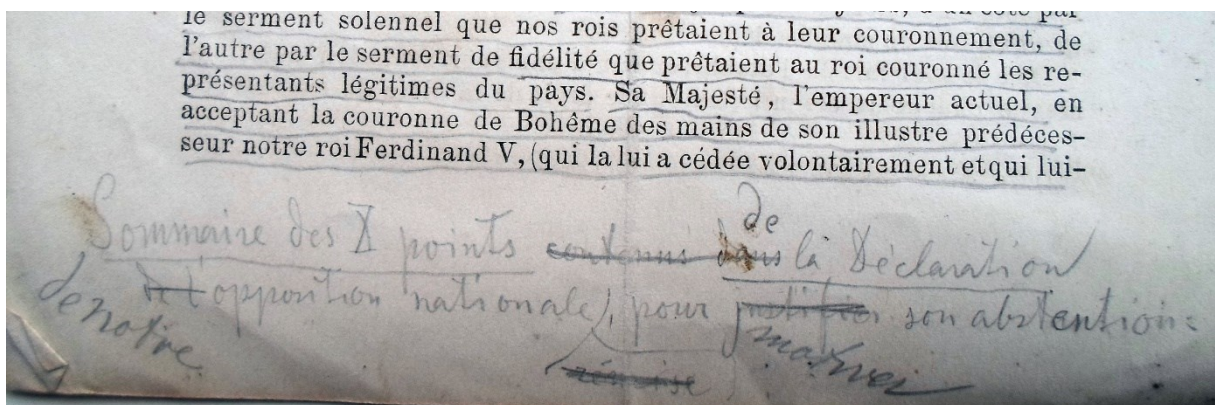 le serment solennel que nos rois prêtaient à leur couronnement, de
l'autre par le serment de fidélité que prêtaient au roi couronné les re-
présentants légitimes du pays. Sa Majesté, l'empereur actuel, en
acceptant la couronne de Bohême des mains de son illustre prédéces-
seur notre roi Ferdinand V, (qui la lui a cédée volontairement et qui lui-
de
Sommaire des X points contenus dans la Déclaration
de l'opposition nationale), pour justifier son abstention:
de notre
motiver